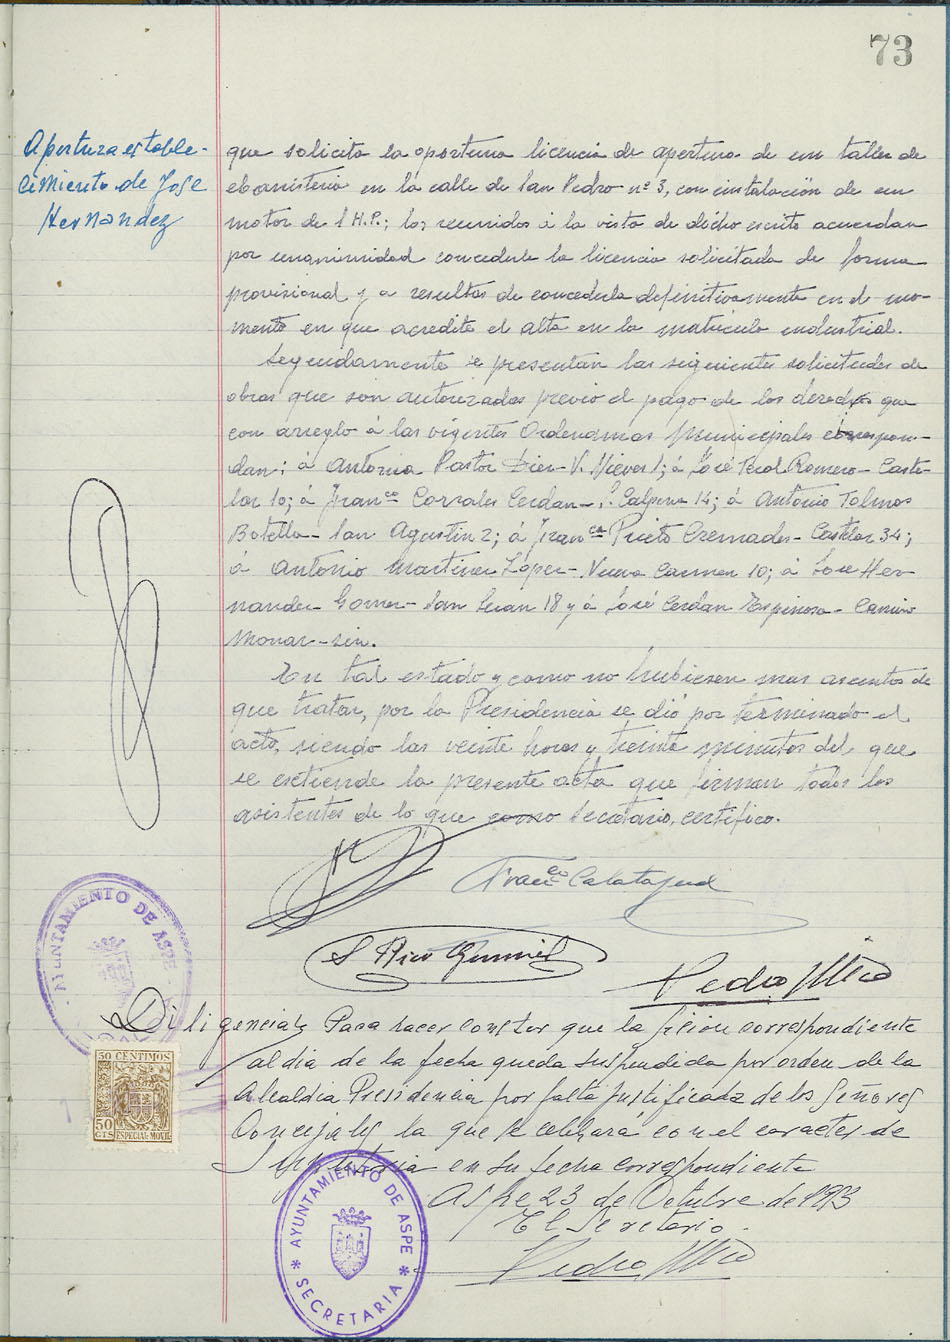 73
Apertura estable-
cimiento de Jose
Hernandez
que solicita la oportuna licencia de apertura de un taller de
ebanisteria en la calle de San Pedro nº 3, con instalación de un
motor de 1 H.P.; los reunidos á la vista de dicho escrito acuerdan
por unanimidad concederle la licencia solicitada de forma
provisional y a resultas de concederla definitivamente en el mo-
mento en que acredite el alta en la matricula industrial.
Segundamente se presentan las siguientes solicitudes de
obras que son autorizadas previo el pago de los derechos que
con arreglo á las vigentes Ordenanzas Municipales correspon-
dan; á Antonia Pastor Diez - V. Nieves 1; á José Terol Romero - Caste-
lar 10; á Franco Corrales Cerdan - Calpena 14; á Antonio Tolmos
Botella - San Agustin 2; á Franca Prieto Cremades - Castelar 34;
á Antonio Martinez López - Nueva Carmen 10; á Jose Her-
nandez Gomez - San Juan 18 y á José Cerdan Espinosa - Camino
Monar - sin.
En tal estado y como no hubiesen mas asuntos de
que tratar, por la Presidencia se dió por terminado el
acto, siendo las veinte horas y treinta minutos del que
se extiende la presente acta que firman todos los
asistentes de lo que como Secretario, certifico.
Franco Calatayud
S Rico
Pedro Mico
Diligencia; Para hacer constar que la sesion correspondiente
al dia de la fecha queda suspendida por orden de la
Alcaldia Presidencia por falta justificada de los Señores
Concejales la que se celebrará con el caracter de
Supletoria en su fecha correspondiente
Aspe 23 de Octubre de 1953
El Secretario.
Pedro Mico
AYUNTAMIENTO DE ASPE
50 CENTIMOS
50
CTS ESPECIAL MOVIL
AYUNTAMIENTO DE ASPE
* SECRETARIA *